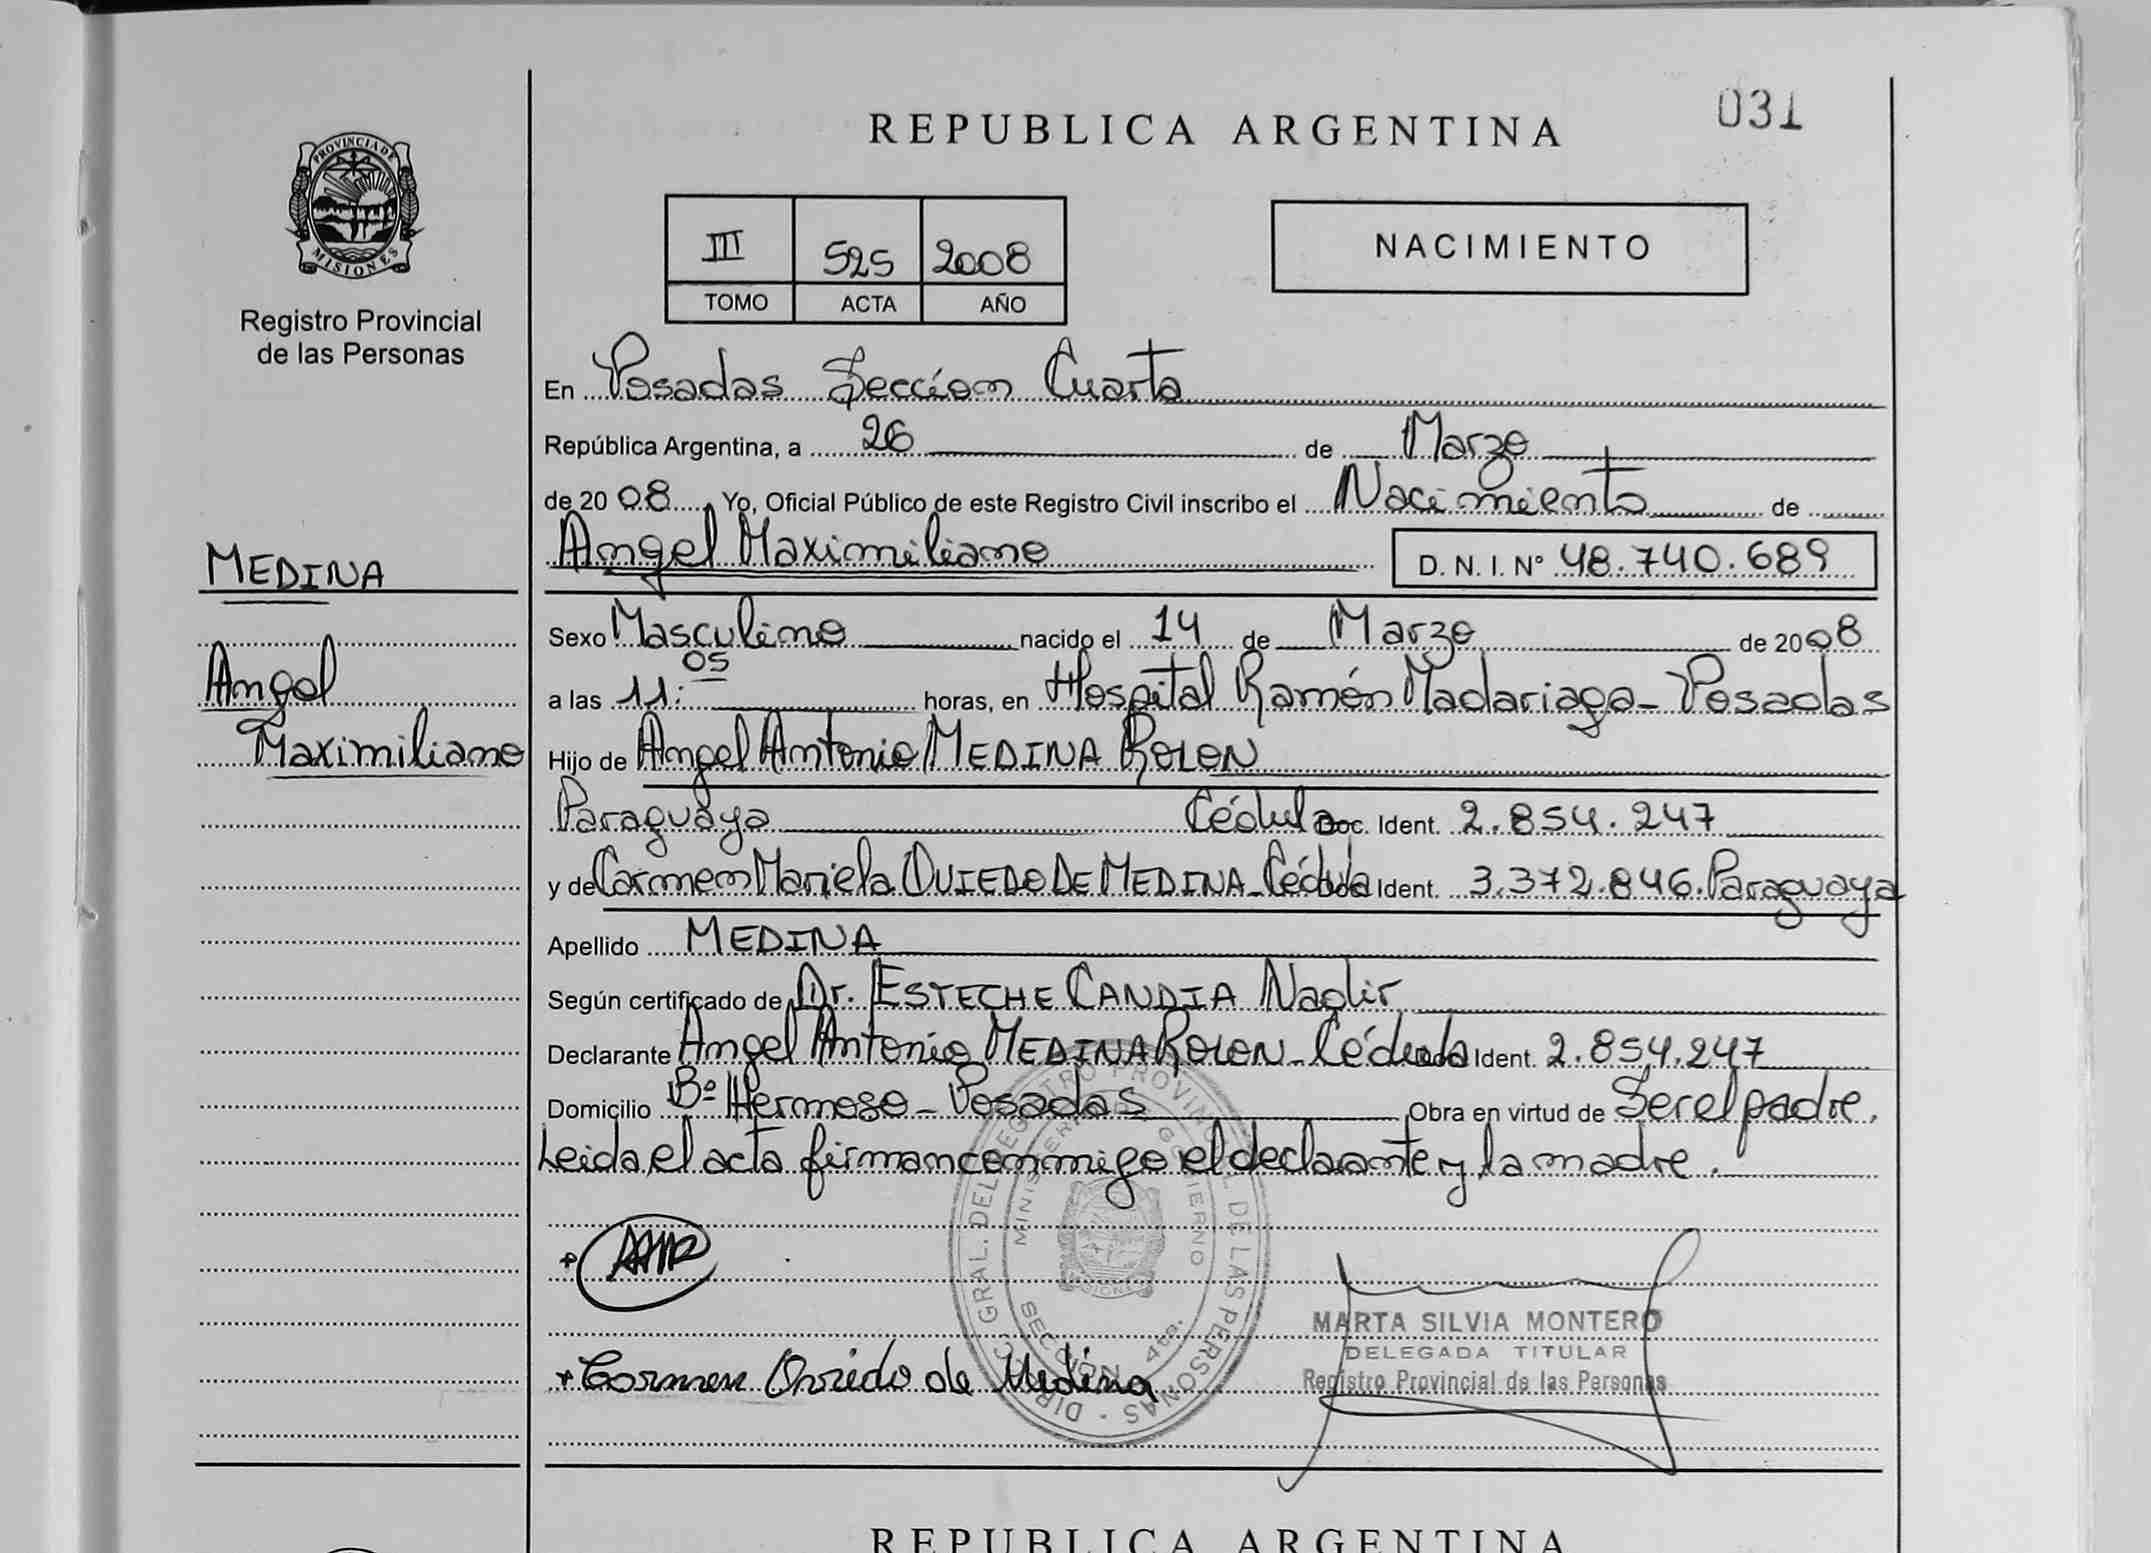 031
REPUBLICA ARGENTINA
PROVINCIA DE
MISIONES
Registro Provincial
de las Personas
III 525 2008
TOMO ACTA AÑO
NACIMIENTO
En Posadas Sección Cuarta
República Argentina, a 26 de Marzo
de 2008 Yo, Oficial Público de este Registro Civil inscribo el Nacimiento de
Angel Maximiliano D. N. I. N° 48.740.689
MEDINA
Angel
Maximiliano
Sexo Masculino nacido el 14 de Marzo de 2008
a las 11:05 horas, en Hospital Ramón Madariaga - Posadas
Hijo de Angel Antonio MEDINA ROLON
Paraguaya Cédula Doc. Ident. 2.854.247
y de Carmen Mariela OVIEDO DE MEDINA - Cédula Ident. 3.372.846. Paraguaya
Apellido MEDINA
Según certificado de Dr. ESTECHE CANDIA Nadir
Declarante Angel Antonio MEDINA ROLON - Cédula Ident. 2.854.247
Domicilio B° Hermoso - Posadas Obra en virtud de Ser el padre.
Leida el acta firman conmigo el declarante y la madre.
DIREC. GRAL. DEL REGISTRO PROVINCIAL DE LAS PERSONAS
MINISTERIO DE GOBIERNO
MISIONES
SECCIÓN 4ta.
+ AAMR
+ Carmen Oviedo de Medina
MARTA SILVIA MONTERO
DELEGADA TITULAR
Registro Provincial de las Personas
REPUBLICA ARGENTINA